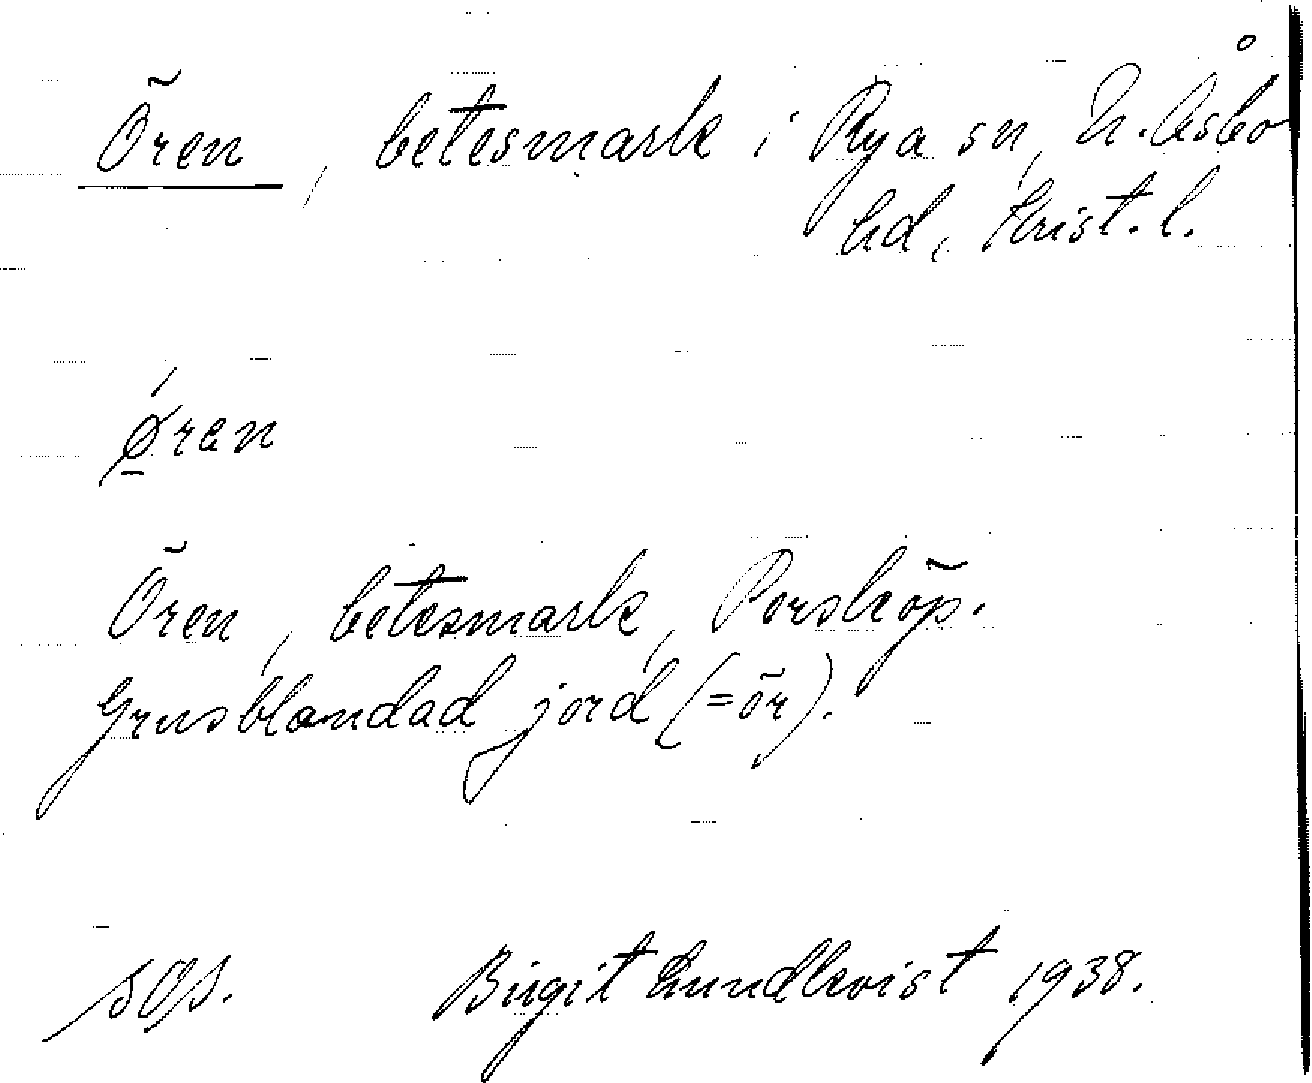 Ören, betesmark i Rya sn, N. Åsbo
hd, Krist. l.
ǿ̱ren
Ören, betesmark, Porsköp.
Grusblandad jord (=ör).
Birgit Lundkvist 1938.